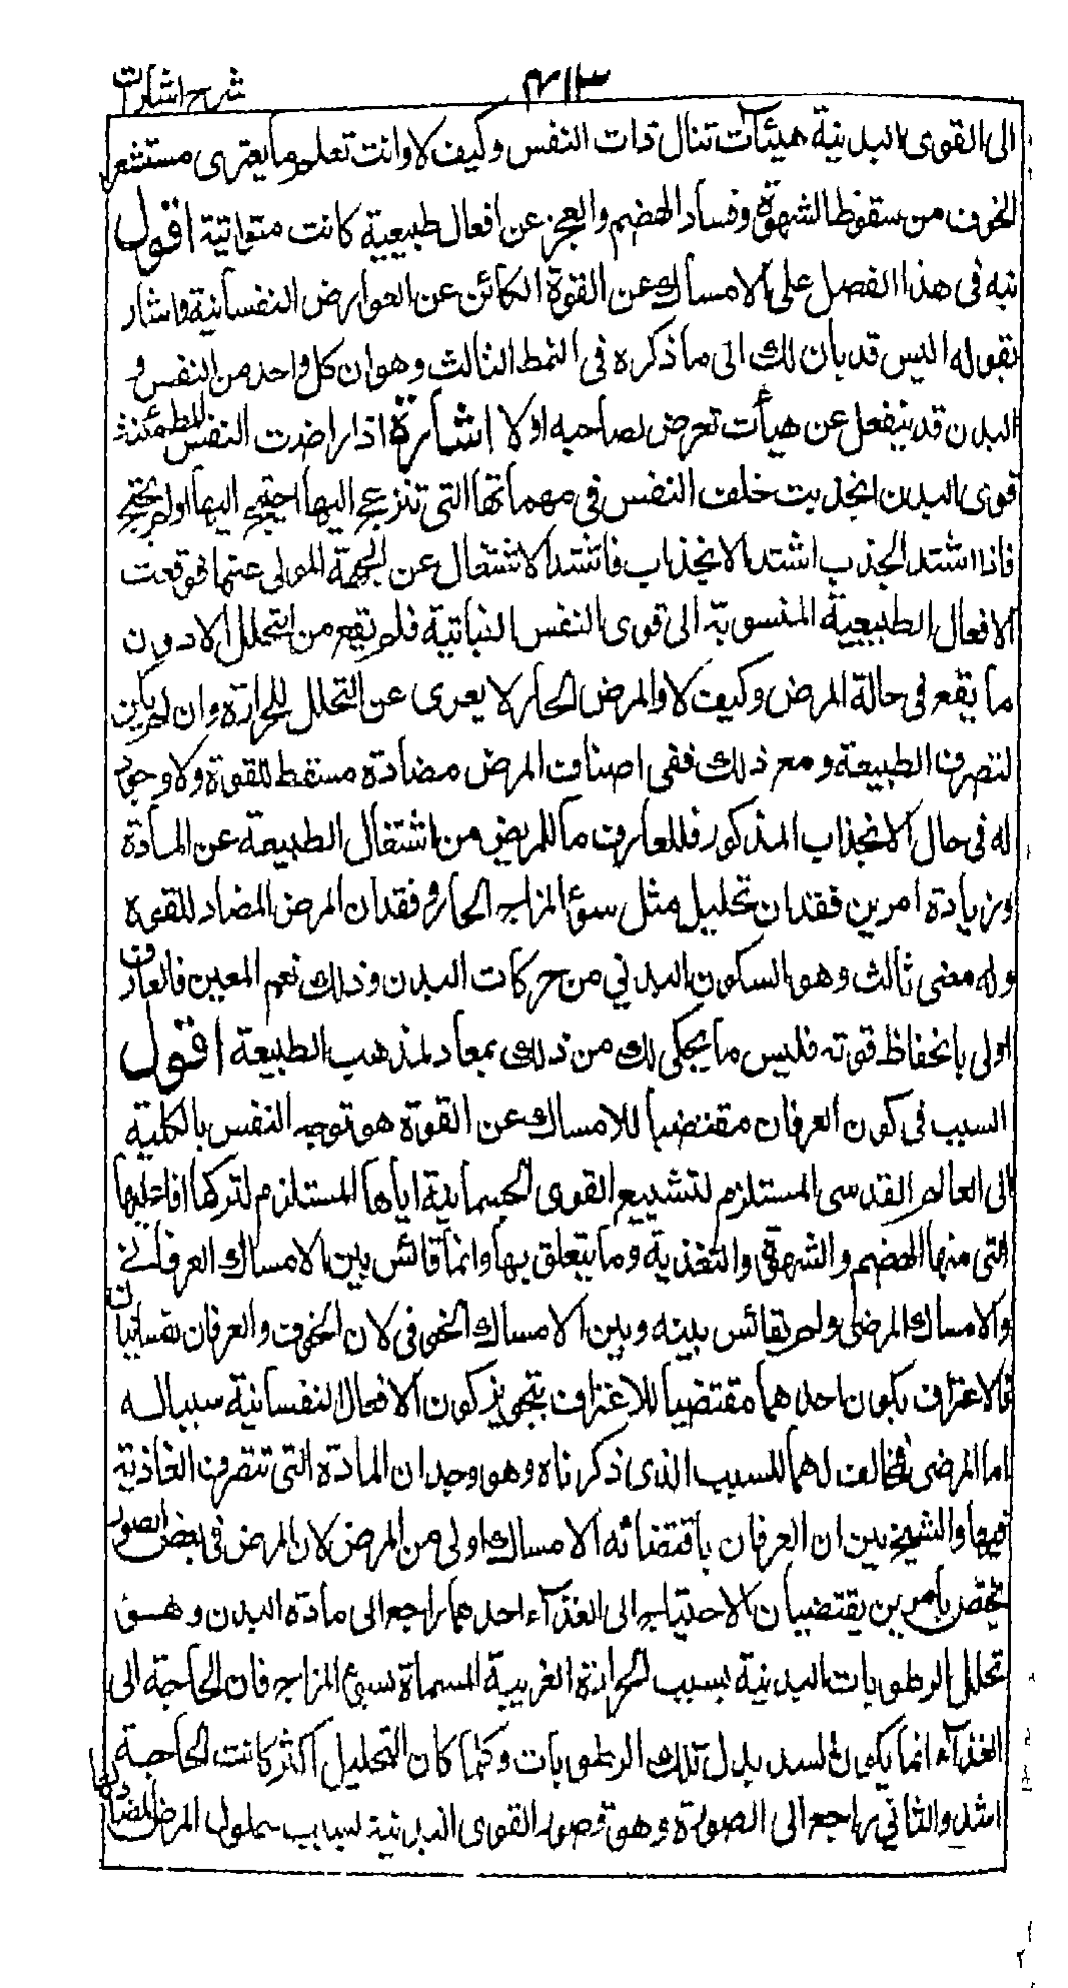 شرح اشارات
الى القوى البدنية هيئآت تنال ذات النفس وكيف لا وانت تعلم ما يعترى مستشعر
الخوف من سقوط الشهوة وفساد الهضم والعجز عن افعال طبيعية كانت متواتية اقول
نبه فى هذا الفصل على الامساك عن القوة الكائن عن العوارض النفسانية فاشار
بقوله اليس قد بان لك الى ما ذكره فى النمط الثالث وهو ان كل واحد من النفس و
البدن قد ينفعل عن هيأت تعرض لصاحبه اولا اشارة اذا راضت النفس المطمئنة
قوى البدن انجذبت خلف النفس فى مهماتها التى تنزعج اليها احتيج اليها اولم يحتج
فاذا اشتد الجذب اشتد الانجذاب فاشتد الاشتغال عن الجهة المولى عنها فوقعت
الافعال الطبيعية المنسوبة الى قوى النفس النباتية فلم يقع من التحلل الا دون
ما يقع فى حالة المرض وكيف لا والمرض الحار لا يعرى عن التحلل للحرارة وان لم يكن
لتصرف الطبيعة ومع ذلك ففى اصناف المرض مضادة مسقط للقوة ولا وجود
له فى حال الانجذاب المذكور فللعارف ما للمريض من اشتغال الطبيعة عن المادة
وزيادة امرين فقدان تحليل مثل سوء المزاج الحار وفقدان المرض المضاد للقوة
وله معنى ثالث وهو السكون البدني من حركات البدن وذلك نعم المعين فالعارف
اولى بانحفاظ قوته فليس ما يحكى لك من ذلك بمعاد لمذهب الطبيعة اقول
السبب فى كون العرفان مقتضيا للامساك عن القوة هو توجه النفس بالكلية
الى العالم القدسى المستلزم لتشييع القوى الجسمانية اياها المستلزم لتركها افاعيلها
التى منها الهضم والشهوة والتغذية وما يتعلق بها وانما قائس بين الامساك العرفانے
والامساك المرضى ولم يقائس بينه وبين الامساك الخوفى لان الخوف والعرفان نفسانيان
فالاعتراف بكون احدهما مقتضيا للاعتراف بتجويز كون الافعال النفسانية سببا له
اما المرضى فمخالف لهما للسبب الذى ذكرناه وهو وجدان المادة التى تتصرف الغاذية
فيها والشيخ بين ان العرفان باقتضائه الامساك اولى من المرض لان المرض فى بعض الصور
يختص بامرين يقتضيان الاحتياج الى الغذآء احدهما راجع الى مادة البدن وهو
تحلل الرطوبات البدنية بسبب الحرارة الغريبة المسماة بسوء المزاج فان الحاجة الى
الغذآء انما يكون لسد بدل تلك الرطوبات وكلما كان التحليل اكثر كانت الحاجة
اشد والثانى راجع الى الصورة وهو قصور القوى البدنية بسبب حلول المرض المضاد لها